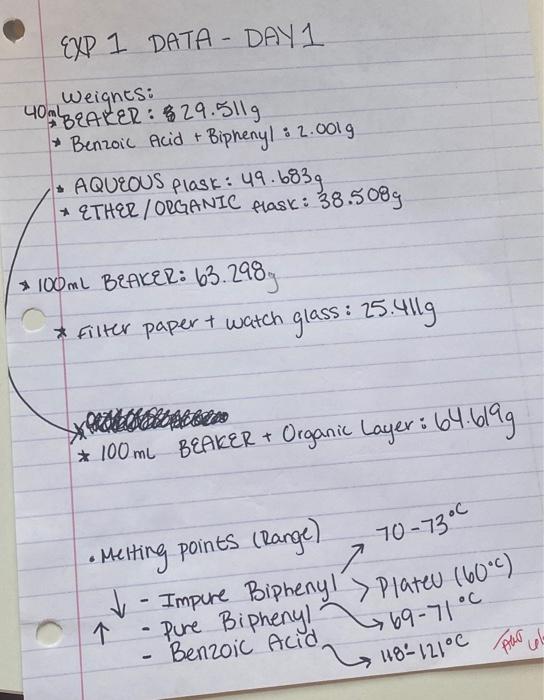 EXP 1 DATA - DAY 1
Weights:
40mL
* BEAKER: 29.511g
* Benzoic Acid + Biphenyl: 2.001g
* AQUEOUS flask: 49.683g
* ETHER/ORGANIC flask: 38.508g
* 100mL BEAKER: 63.298g
* Filter paper + watch glass: 25.411g
* 100mL BEAKER + Organic Layer: 64.619g
• Melting points (Range)
70-73°C
↓ - Impure Biphenyl > Plateu (60°C)
↑ - Pure Biphenyl → 69-71°C
- Benzoic Acid → 118°-121°C